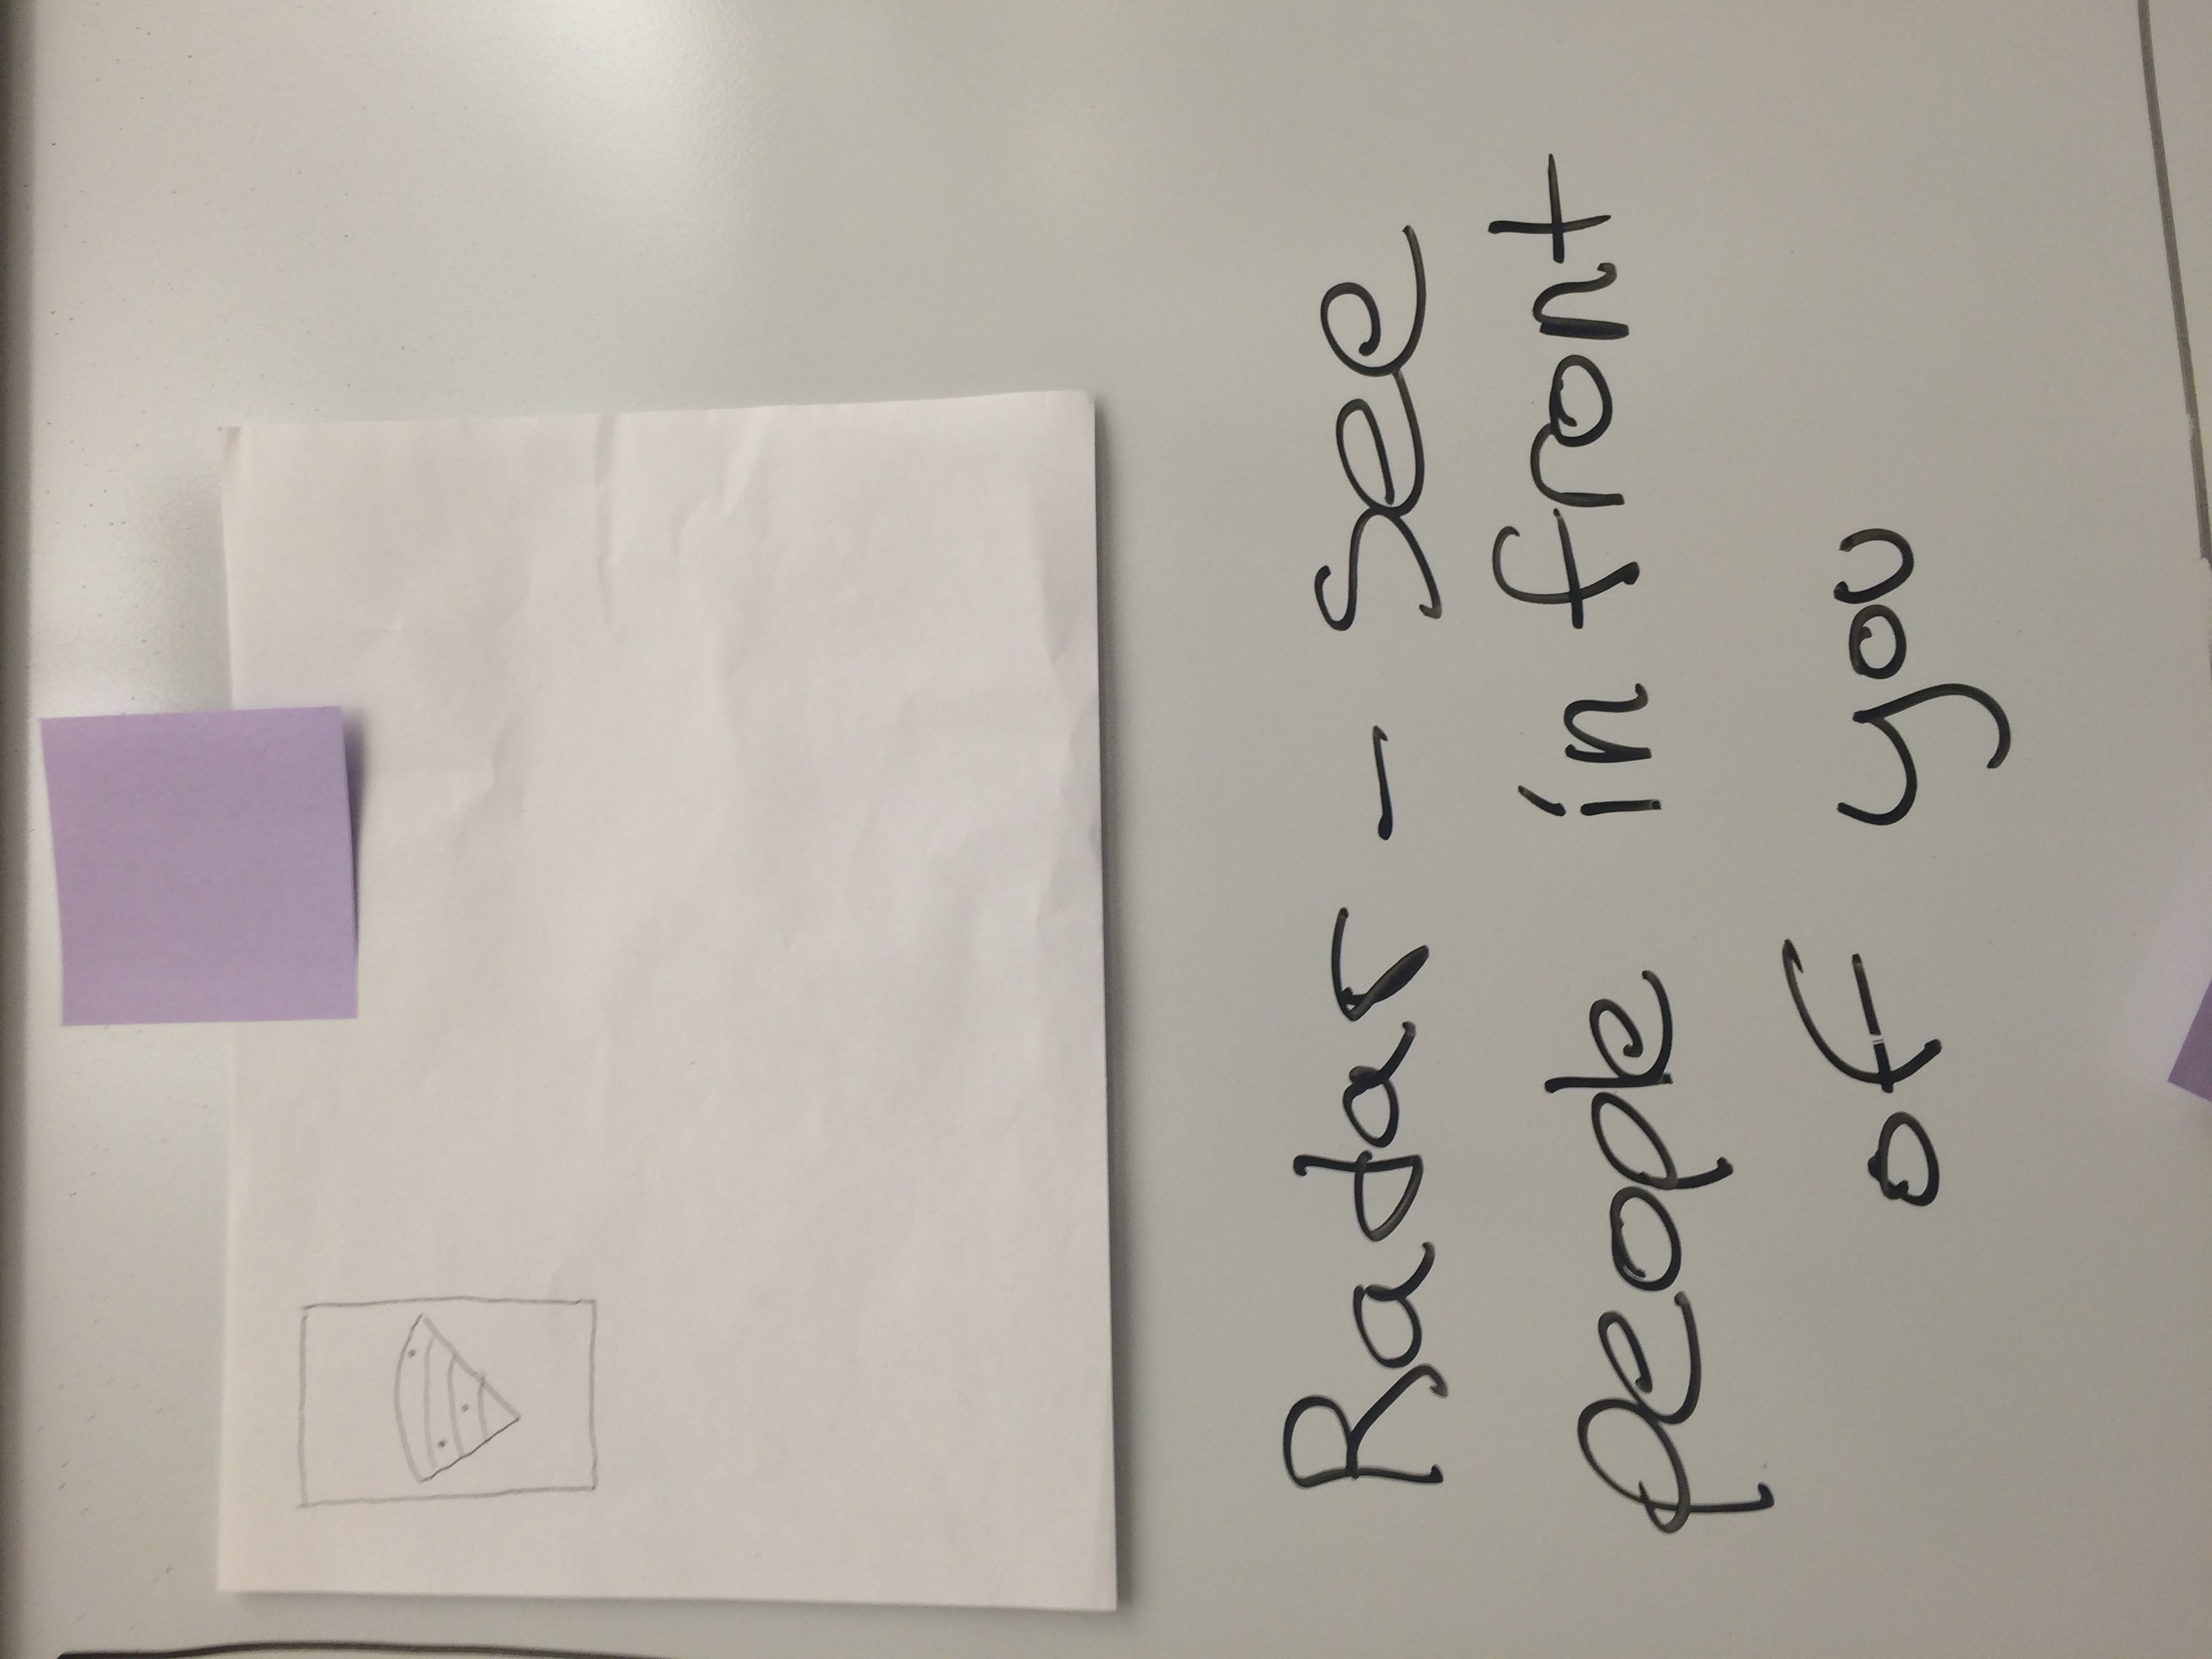 Radar - see
people in front
of you